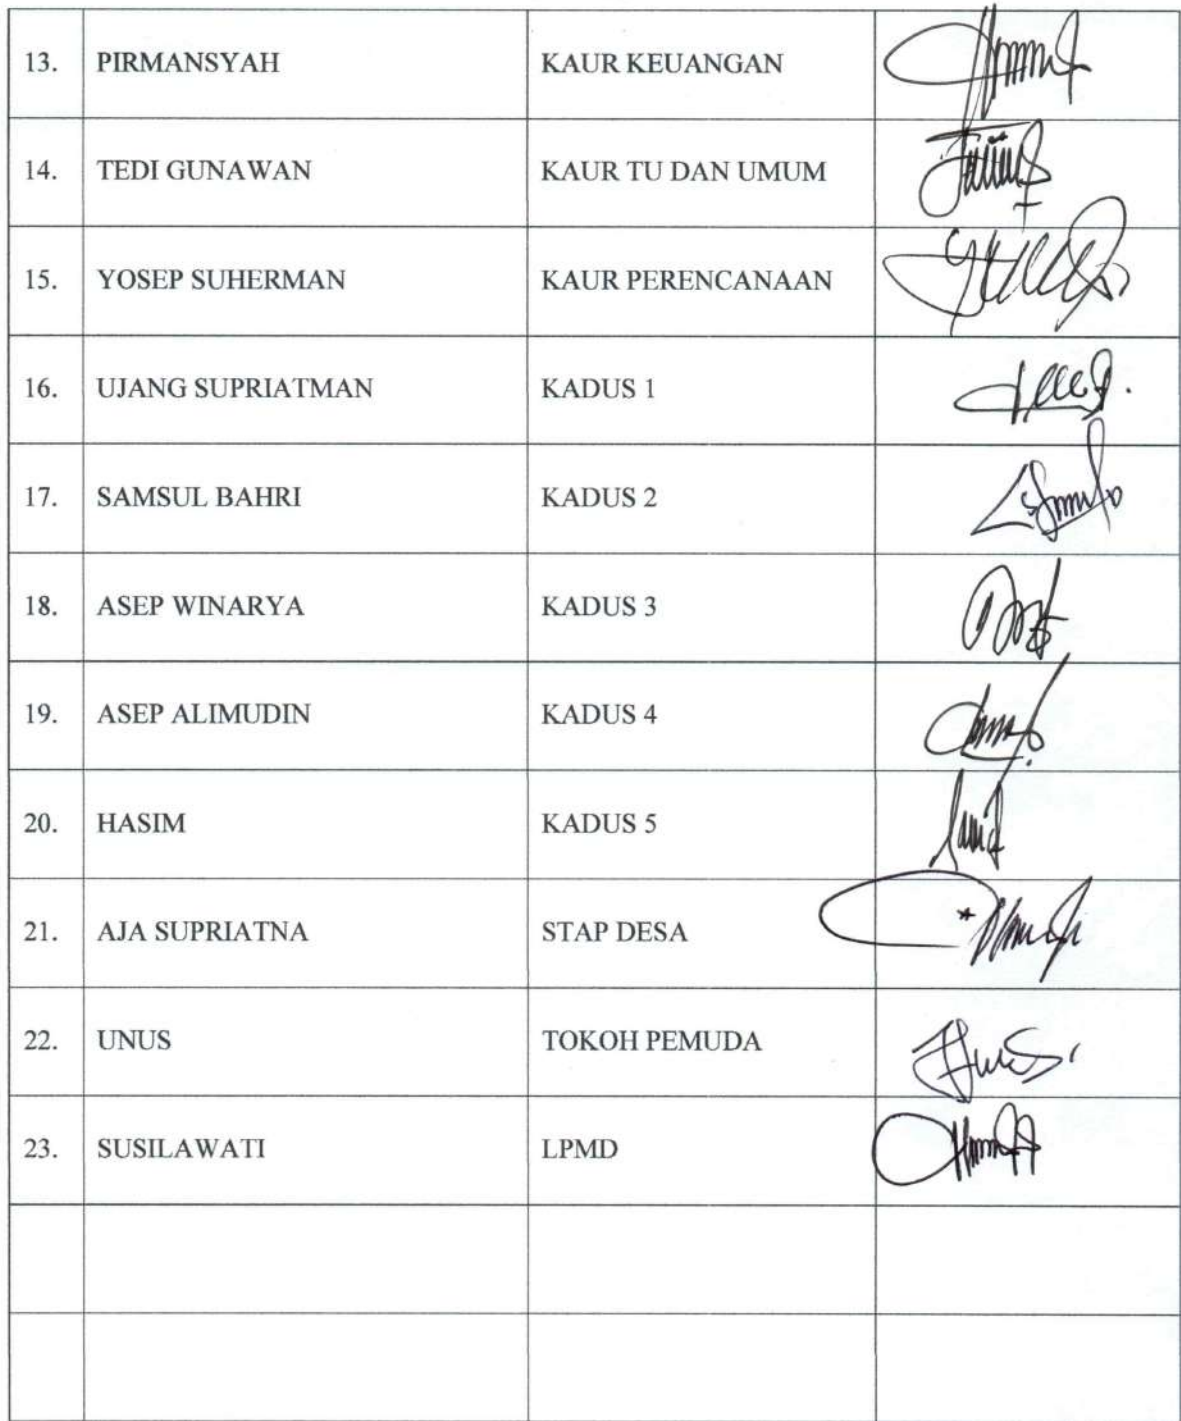 13. PIRMANSYAH KAUR KEUANGAN
14. TEDI GUNAWAN KAUR TU DAN UMUM
15. YOSEP SUHERMAN KAUR PERENCANAAN
16. UJANG SUPRIATMAN KADUS 1
17. SAMSUL BAHRI KADUS 2
18. ASEP WINARYA KADUS 3
19. ASEP ALIMUDIN KADUS 4
20. HASIM KADUS 5
21. AJA SUPRIATNA STAP DESA
22. UNUS TOKOH PEMUDA
23. SUSILAWATI LPMD